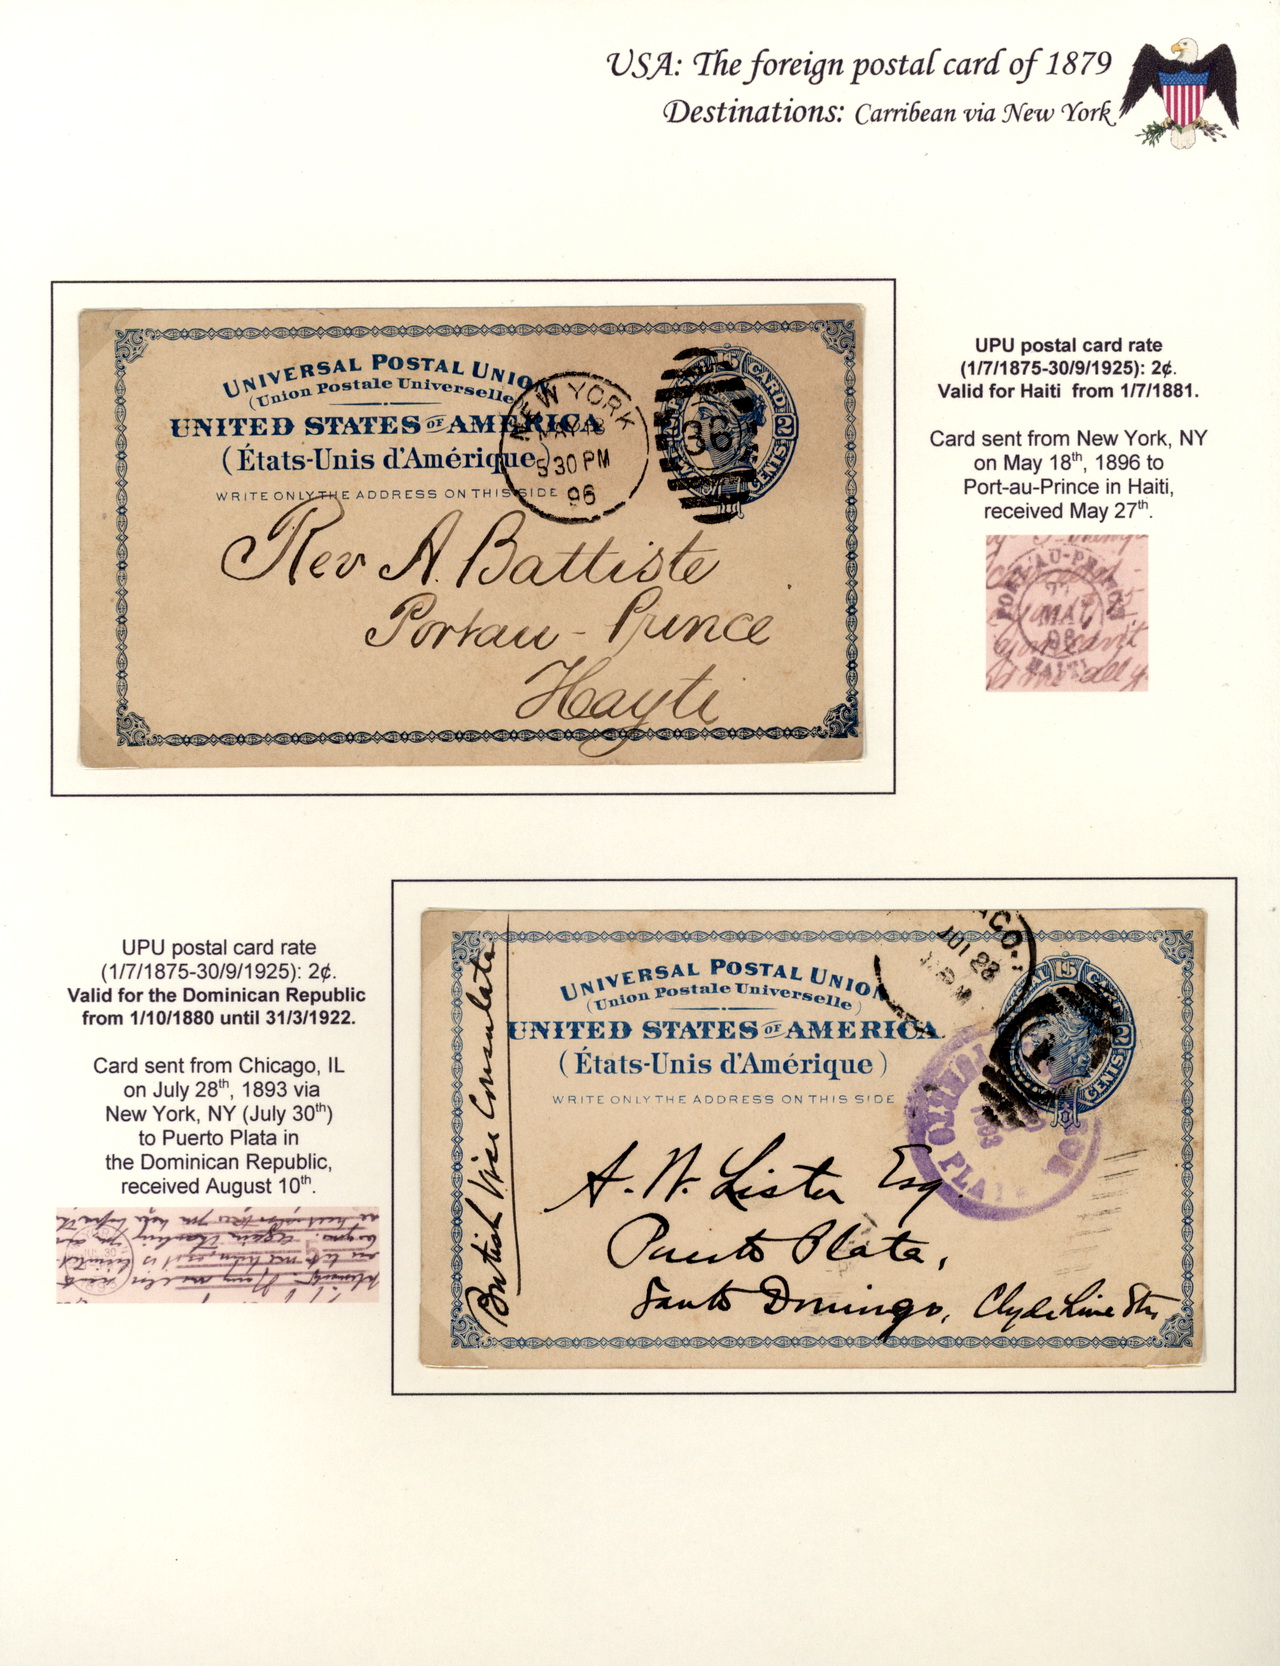 USA: The foreign postal card of 1879
Destinations: Carribean via New York
UNIVERSAL POSTAL UNION
(Union Postale Universelle)
UNITED STATES OF AMERICA
(États-Unis d'Amérique)
WRITE ONLY THE ADDRESS ON THIS SIDE
NEW YORK
MAY 18
5 30 PM
96
36
POSTAL CARD
2 CENTS
Rev A. Battiste
Portau-Prince
Hayti
UPU postal card rate
(1/7/1875-30/9/1925): 2¢.
Valid for Haiti from 1/7/1881.
Card sent from New York, NY
on May 18th, 1896 to
Port-au-Prince in Haiti,
received May 27th.
PORT-AU-PRINCE
27
MAI
96
HAITI
UPU postal card rate
(1/7/1875-30/9/1925): 2¢.
Valid for the Dominican Republic
from 1/10/1880 until 31/3/1922.
Card sent from Chicago, IL
on July 28th, 1893 via
New York, NY (July 30th)
to Puerto Plata in
the Dominican Republic,
received August 10th.
UNIVERSAL POSTAL UNION
(Union Postale Universelle)
UNITED STATES OF AMERICA
(États-Unis d'Amérique)
WRITE ONLY THE ADDRESS ON THIS SIDE
JUL 28
CARD
2 CENTS
1
PUERTO PLATA
1893
British Vice Consulate
A. W. Lister Esq.
Puerto Plata,
Santo Domingo, Clyde Line Str,